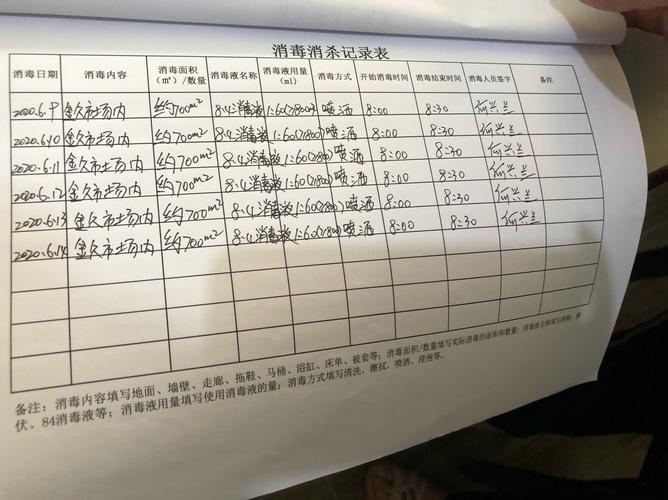 消毒消杀记录表
消毒日期 消毒内容 消毒面积（㎡）/数量 消毒液名称 消毒液用量（ml） 消毒方式 开始消毒时间 消毒结束时间 消毒人员签字 备注
2020.6.9 金久市场内 约700m² 8.4消毒液 1:60(7800) 喷洒 8:00 8:30 何兴兰
2020.6.10 金久市场内 约700m² 8.4消毒液 1:60(7800) 喷洒 8:00 8:30 何兴兰
2020.6.11 金久市场内 约700m² 8.4消毒液 1:60(7800) 喷洒 8:00 8:30 何兴兰
2020.6.12 金久市场内 约700m² 8.4消毒液 1:60(7800) 喷洒 8:00 8:30 何兴兰
2020.6.13 金久市场内 约700m² 8.4消毒液 1:60(7800) 喷洒 8:00 8:30 何兴兰
2020.6.14 金久市场内 约700m² 8.4消毒液 1:60(7800) 喷洒 8:00 8:30 何兴兰
备注：消毒内容填写地面、墙壁、走廊、拖鞋、马桶、浴缸、床单、被套等；消毒面积/数量填写实际消毒的面积和数量；消毒液名称填写酒精、碘
伏、84消毒液等；消毒液用量填写使用消毒液的量；消毒方式填写清洗、擦拭、喷洒、浸泡等。